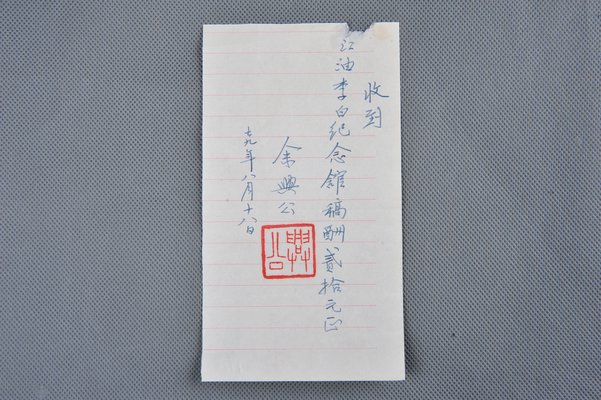 收到
江油李白纪念馆稿酬贰拾元正
余興公
七九年八月十八日
興公